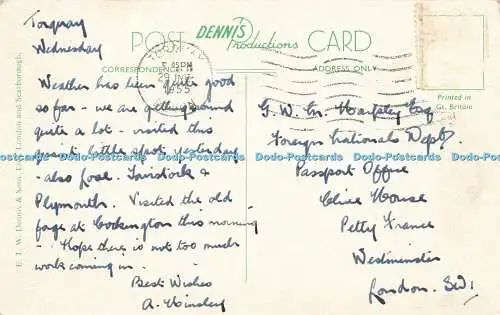 Torquay
Wednesday
Weather has been quite good
so far - we are getting around
quite a lot - visited this
quaint little spot yesterday
- also Looe. Tavistock &
Plymouth. Visited the old
forge at Cockington this morning
- Hope there is not too much
work coming in.
Best Wishes
A. Hinsley
POST DENNIS Productions CARD
CORRESPONDENCE
ADDRESS ONLY
1955
Printed in
Gt. Britain
G. W. Esq
Foreign Nationals Dept
Passport Office
Clive House
Petty France
Westminster
London. SW1
E. T. W. Dennis & Sons, Ltd., London and Scarborough.
Dado Postcards Dado Postcards Dado Postcards Dado Postcards Dado Postcards